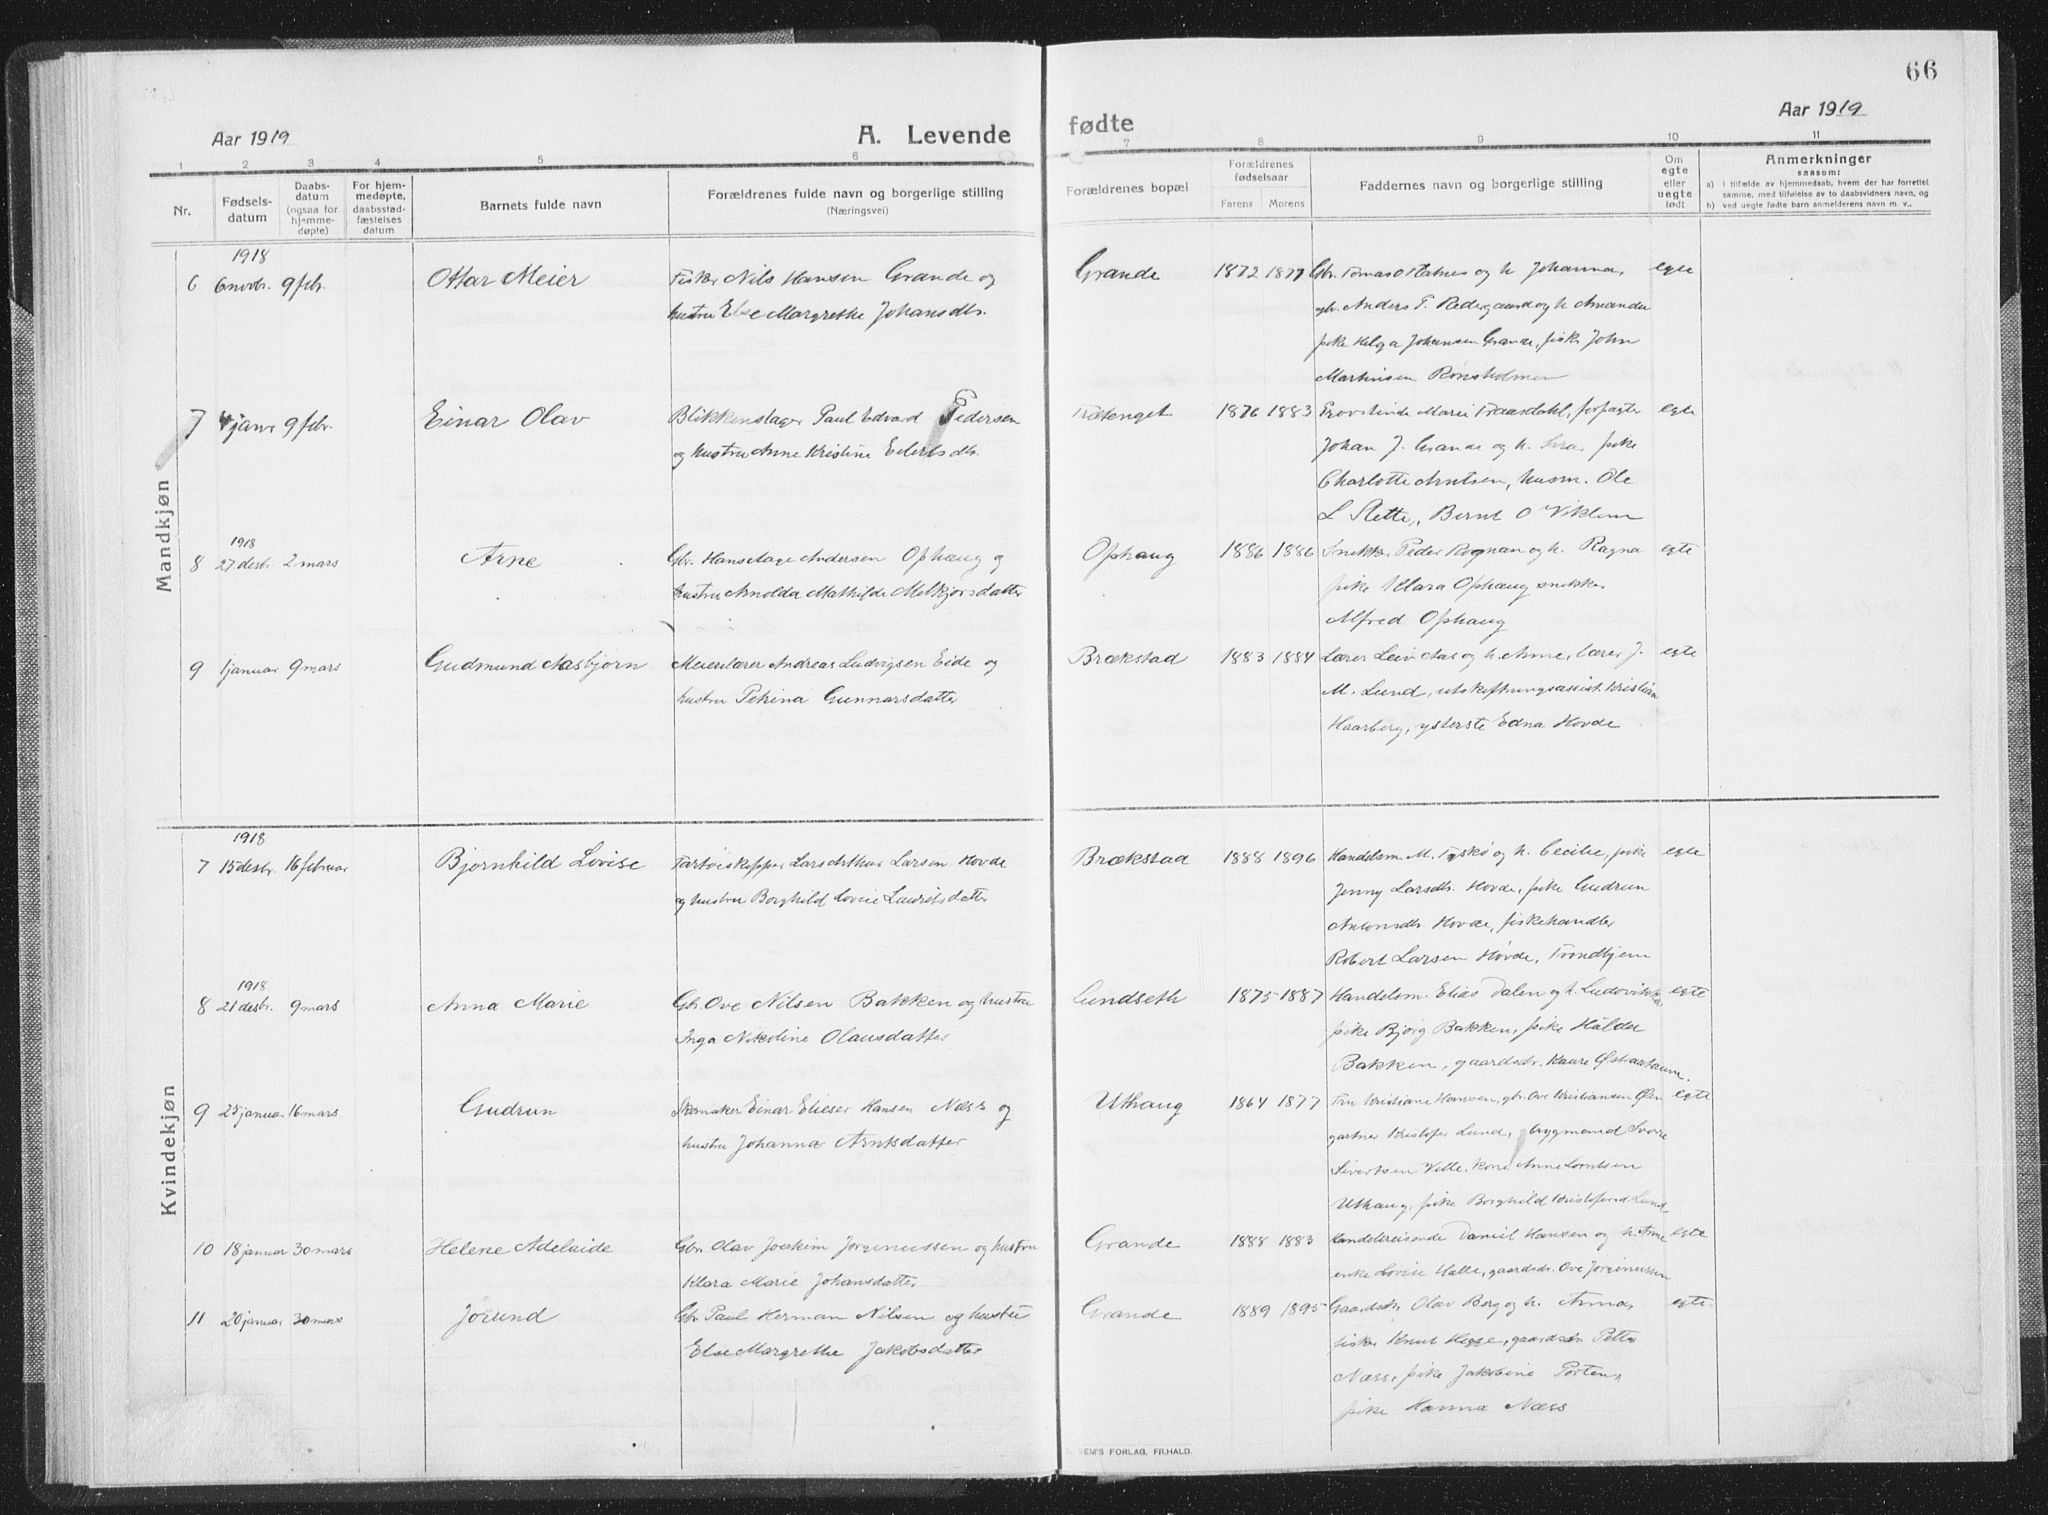 66
Aar 1919
A. Levende
fødte
Aar 1919
1 2 3 4 5 6 7 8 9 10 11
Nr.
Fødsels-
datum
Daabs-
datum
(ogsaa for
hjemme-
døpte)
For hjem-
medøpte,
daabsstad-
fæstelses
datum
Barnets fulde navn
Forældrenes fulde navn og borgerlige stilling
(Næringsvei)
Forældrenes bopæl
Forældrenes
fødselsaar
Farens Morens
Faddernes navn og borgerlige stilling
Om
egte
eller
uegte
født
Anmerkninger
saasom:
a) i tilfælde av hjemmedaab, hvem der har forrettet
samme, med tilføielse av to daabsvidners navn, og
b) ved uegte fødte barn anmelderens navn m. v.,
Mandkjøn
1918
6 6 novbr. 9 febr. Ottar Meier Fisker Nils Hansen Grande og Grande 1872 1877 Gbr. Tomas O Flatnes og h. Johanna, egte
hustru Else Margrethe Johansdtr. gbr. Anders T. Redergaard og h. Amanda
pike Helga Johansen Grande, fisk. John
Martinsen Rønsholmen
7 4 janr 9 febr. Einar Olav Blikkenslager Paul Edvard Pedersen Tratenget 1876 1883 Marie forpagter egte
og hustru Anne Kristine Edertsdtr. Johan J. Grande og h. Sara, pike
Charlotte Arntsen, husm. Ole
L Slette, Bernt O Viklem
1918
8 27 desbr. 2 mars Arne Gbr. Hans Andersen Ophaug og Ophaug 1886 1886 Snekk. Peder Rognan og h. Ragna egte
hustru Arnolda Mathilde Melkjorsdatter pike Klara Ophaug snekker
Alfred Ophaug
9 1 januar 9 mars Gudmund Aasbjørn Meierilærer Andreas Ludvigsen Eide og Brækstad 1883 1884 Lærer Leiv Aas og h. Anne, lærer J. egte
hustru Petrina Gunnarsdatter M. Lund, utskiftningsassist. Kristian
Haarberg, ysterske Edna Hovde
Kvindekjøn
1918
7 15 desbr. 16 februar Bjørnhild Lovise Fartøiskipper Lars Arthur Larsen Hovde Brækstad 1888 1896 Handelsm. M. Fyskø og h. Cecilie, pike egte
og hustru Borghild Lovise Lauritsdatter Jenny Larsdtr. Hovde, pike Gudrun
Antonsdtr. Hovde, fiskehandler
Robert Larsen Hovde, Trondhjem
1918
8 21 desbr. 9 mars Anna Marie Gbr. Ove Nilsen Bakken og hustru Lundseth 1875 1887 Handelsm. Elias Dalen og h. Ludovikka egte
Inga Nikoline Olausdatter pike Bjørg Bakken, pike Halda
Bakken, gaardsdr. Kaare Østraahaunn.
9 25 januar 16 mars Gudrun Skomaker Einar Elieser Hansen Næss og Uthaug 1864 1877 Fru Kristiane Hansen, gbr. Ove Kristiansen Øien egte
hustru Johanna Arntsdatter gartner Kristofer Lund, bygmand Sverre
Sivertsen Velle, kone Anne Lorntsen
Uthaug, pike Borghild Kristofersd. Lund
10 18 januar 30 mars Helene Adelaide Gbr. Olav Joakim Jørginussen og hustru Grande 1888 1883 Handelsreisende Daniel Hansen og h. Anne egte
Klara Marie Johansdatter enke Lovise Halle, gaardsdr. Ove Jørginussen
11 20 januar 30 mars Jorund Gbr Paul Herman Nilsen og hustru Grande 1889 1895 Gaardsdr. Olav Berg og h. Anna, egte
Else Margrethe Jakobsdatter fisker Knut Hegge, gaardsdr Petter
Næss, pike Jakobine Porten,
pike Hanna Næss
EM'S FORLAG, FR.HALD.